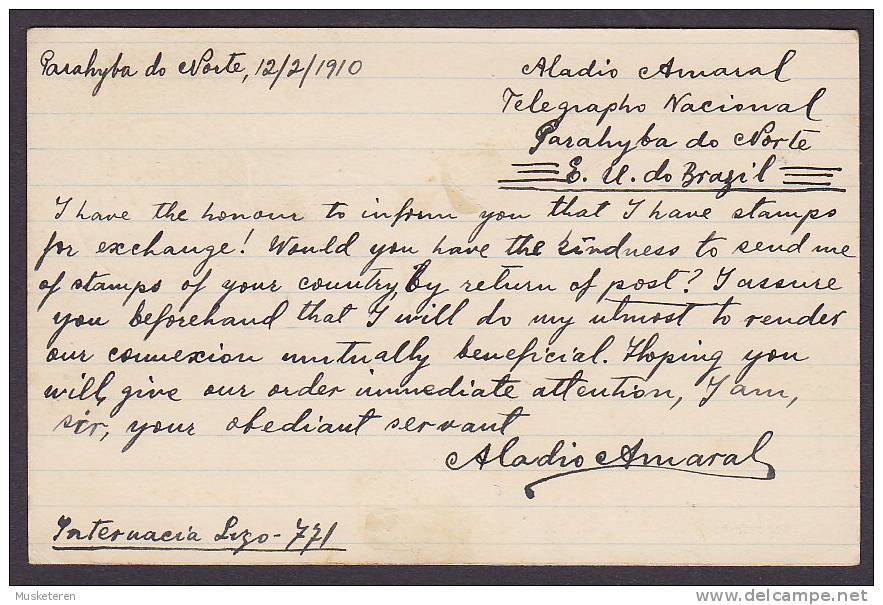 Parahyba do Norte, 12/2/1910
Aladio Amaral
Telegrapho Nacional
Parahyba do Norte
E. U. do Brazil
I have the honour to inform you that I have stamps
for exchange! Would you have the kindness to send me
of stamps of your country, by return of post? I assure
you beforehand that I will do my utmost to render
our connexion mutually beneficial. Hoping you
will, give our order immediate attention, I am,
sir, your obediant servant
Aladio Amaral
Internacia Ligo - 771
Musketeren
www.delcampe.net